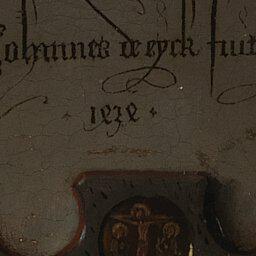 Johannes de eyck fuit
· 1434 ·